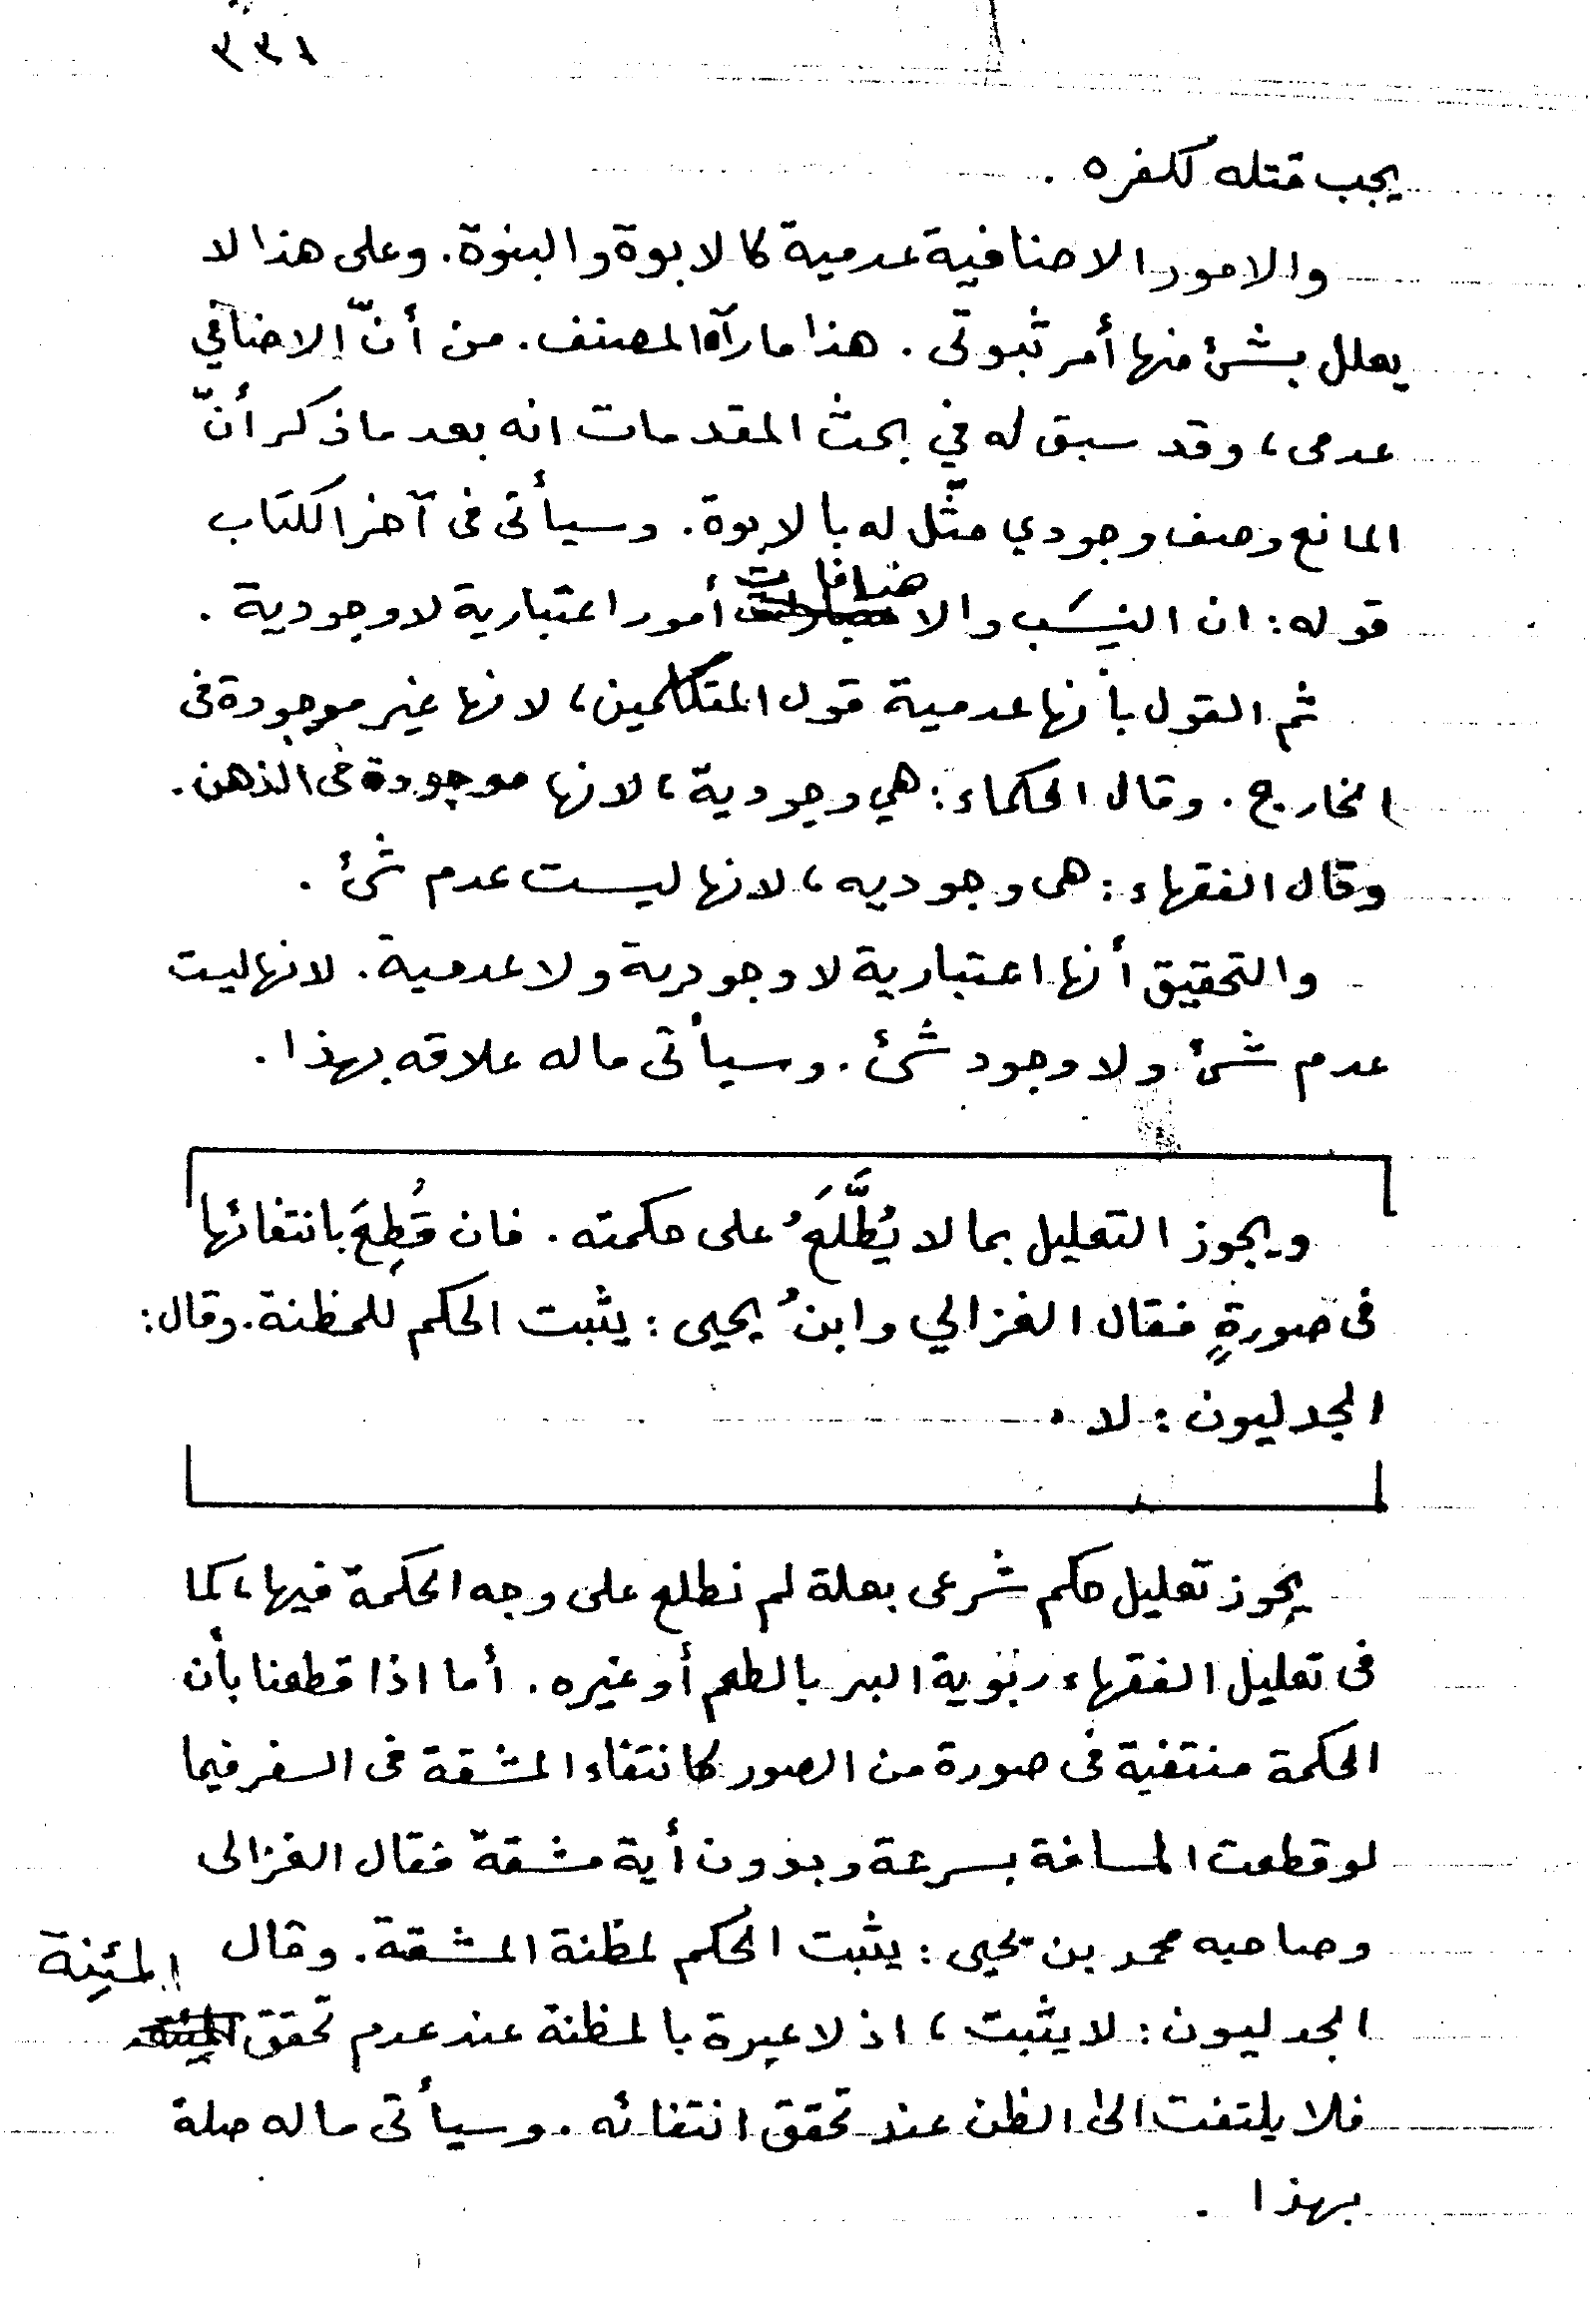 ٣٣١
يجب قتله لكفره .
والامور الاضافية عدمية كالابوة والبنوة. وعلى هذا لا
يعلل بشئ منها أمر ثبوتى . هذا ما رآه المصنف. من أنّ الاضافي
عدمى، وقد سبق له في بحث المقدمات انه بعد ما ذكر أنّ
المانع وصف وجودي مثّل له بالابوة. وسيأتى فى آخر الكتاب
قوله: ان النِسَب والاضافات أمور اعتبارية لا وجودية .
ثم القول بأنها عدمية قول المتكلمين، لانها غير موجودة فى
الخارج . وقال الحكماء: هي وجودية، لانها موجودة فى الذهن.
وقال الفقهاء: هى وجوديه، لانها ليست عدم شئ .
والتحقيق أنها اعتبارية لا وجودية ولا عدمية. لانها ليست
عدم شئ ولا وجود شئ . وسيأتى ماله علاقه بهذا .
ويجوز التعليل بما لا يُطَّلَعُ على حكمته . فان قُطِعَ بانتفائها
فى صورةٍ فقال الغزالي وابنُ يحيى : يثبت الحكم للمظنة. وقال:
الجدليون : لا .
يجوز تعليل حكم شرعى بعلة لم نطلع على وجه الحكمة فيها، كما
فى تعليل الفقهاء ربوية البر بالطعم أو غيره . أما اذا قطعنا بأن
الحكمة منتفية فى صورة من الصور كانتفاء المشقة فى السفر فيما
لو قطعت المسافة بسرعة وبدون أية مشقة فقال الغزالى
وصاحبه محمد بن يحيى : يثبت الحكم لمظنة المشقة. وقال
الجدليون : لا يثبت ، اذ لا عبرة بالمظنة عند عدم تحقق المئنة
فلا يلتفت الى الظن عند تحقق انتفائه . وسيأتى ماله صلة
بهذا .